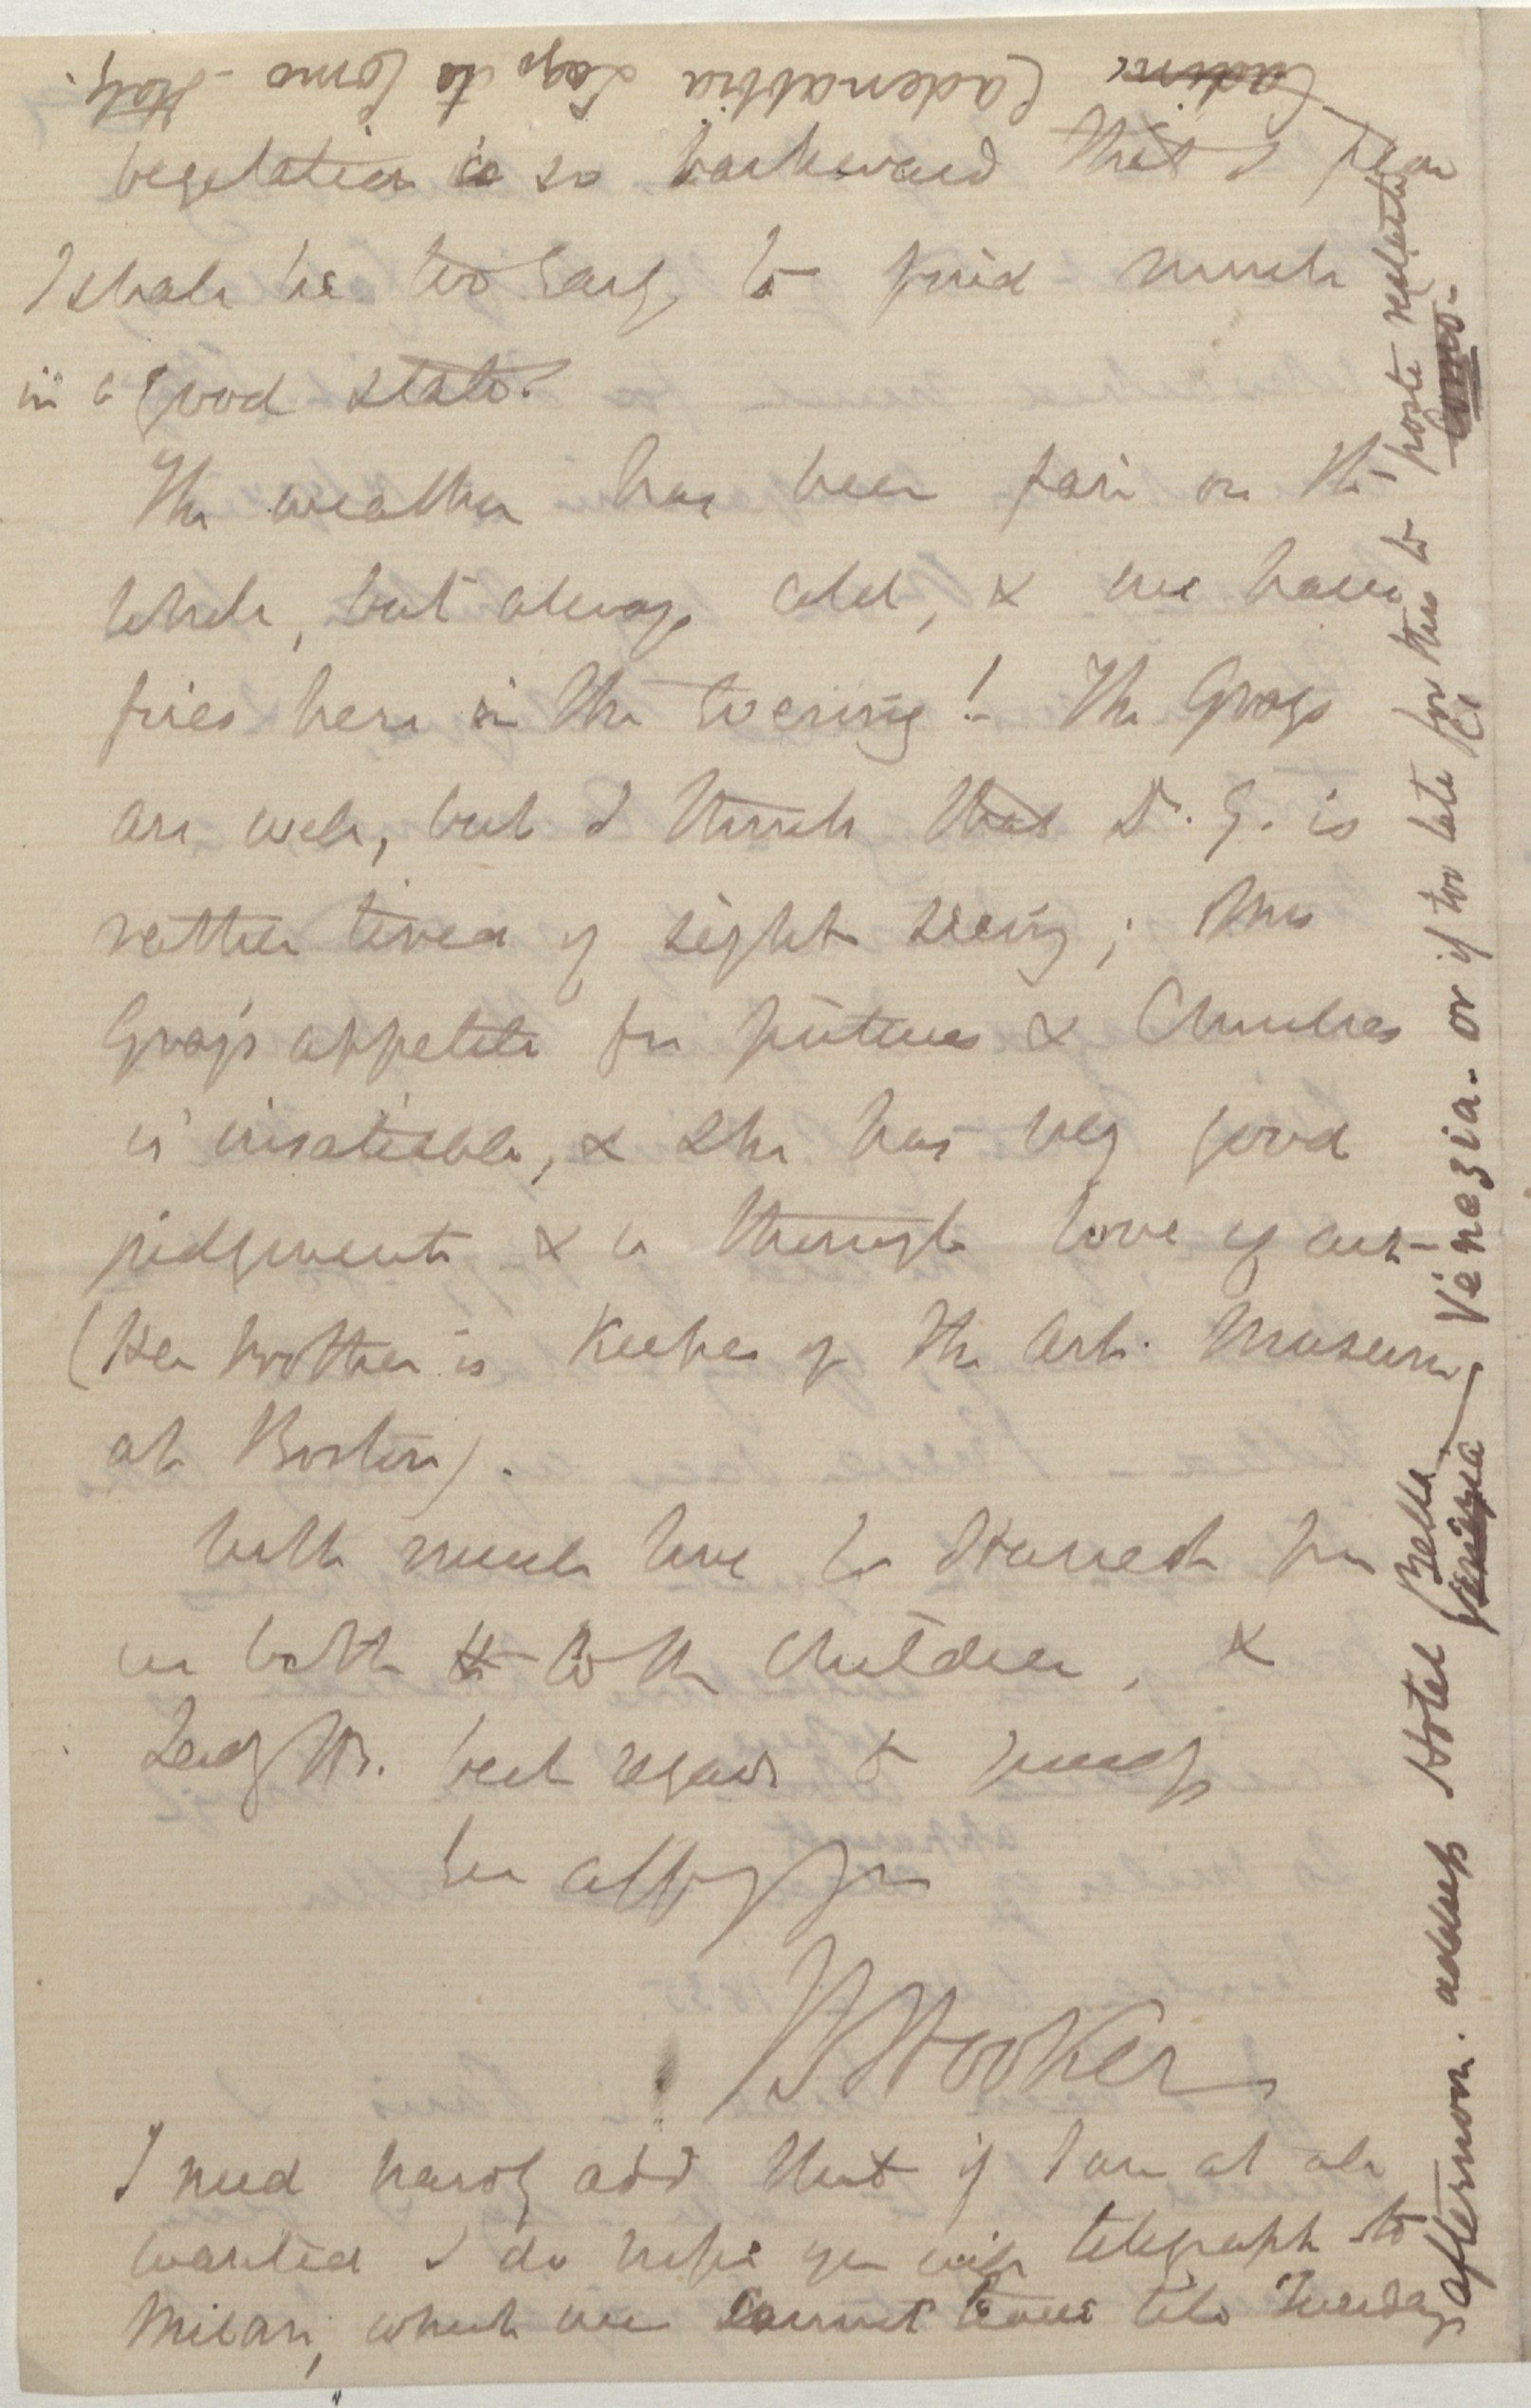 vegetation is so backward that I fear
I shall be too early to find much
in a good state.
The weather has been fair on the
whole, but always cold, & we have
fires here in the evening! The Grays
are well, but I think that Dr. G. is
rather tired of sight seeing; Mrs
Gray's appetite for pictures & Churches
is insatiable, & she has very good
judgment & a thorough love of art
(Her brother is Keeper of the Art. Museum
at Boston).
With much love to Harriet from
us both & to the children, &
Lady H. best regards to
Ever affy yrs
JD Hooker
I need hardly add that if I am at all
wanted I do hope you will telegraph to
Milan, which we cannot leave till Tuesday
afternoon. address Hotel Bella Venezia Venezia - or if too late for this to poste restante
Como.
Cadenabbia Lago de Como - Italy.